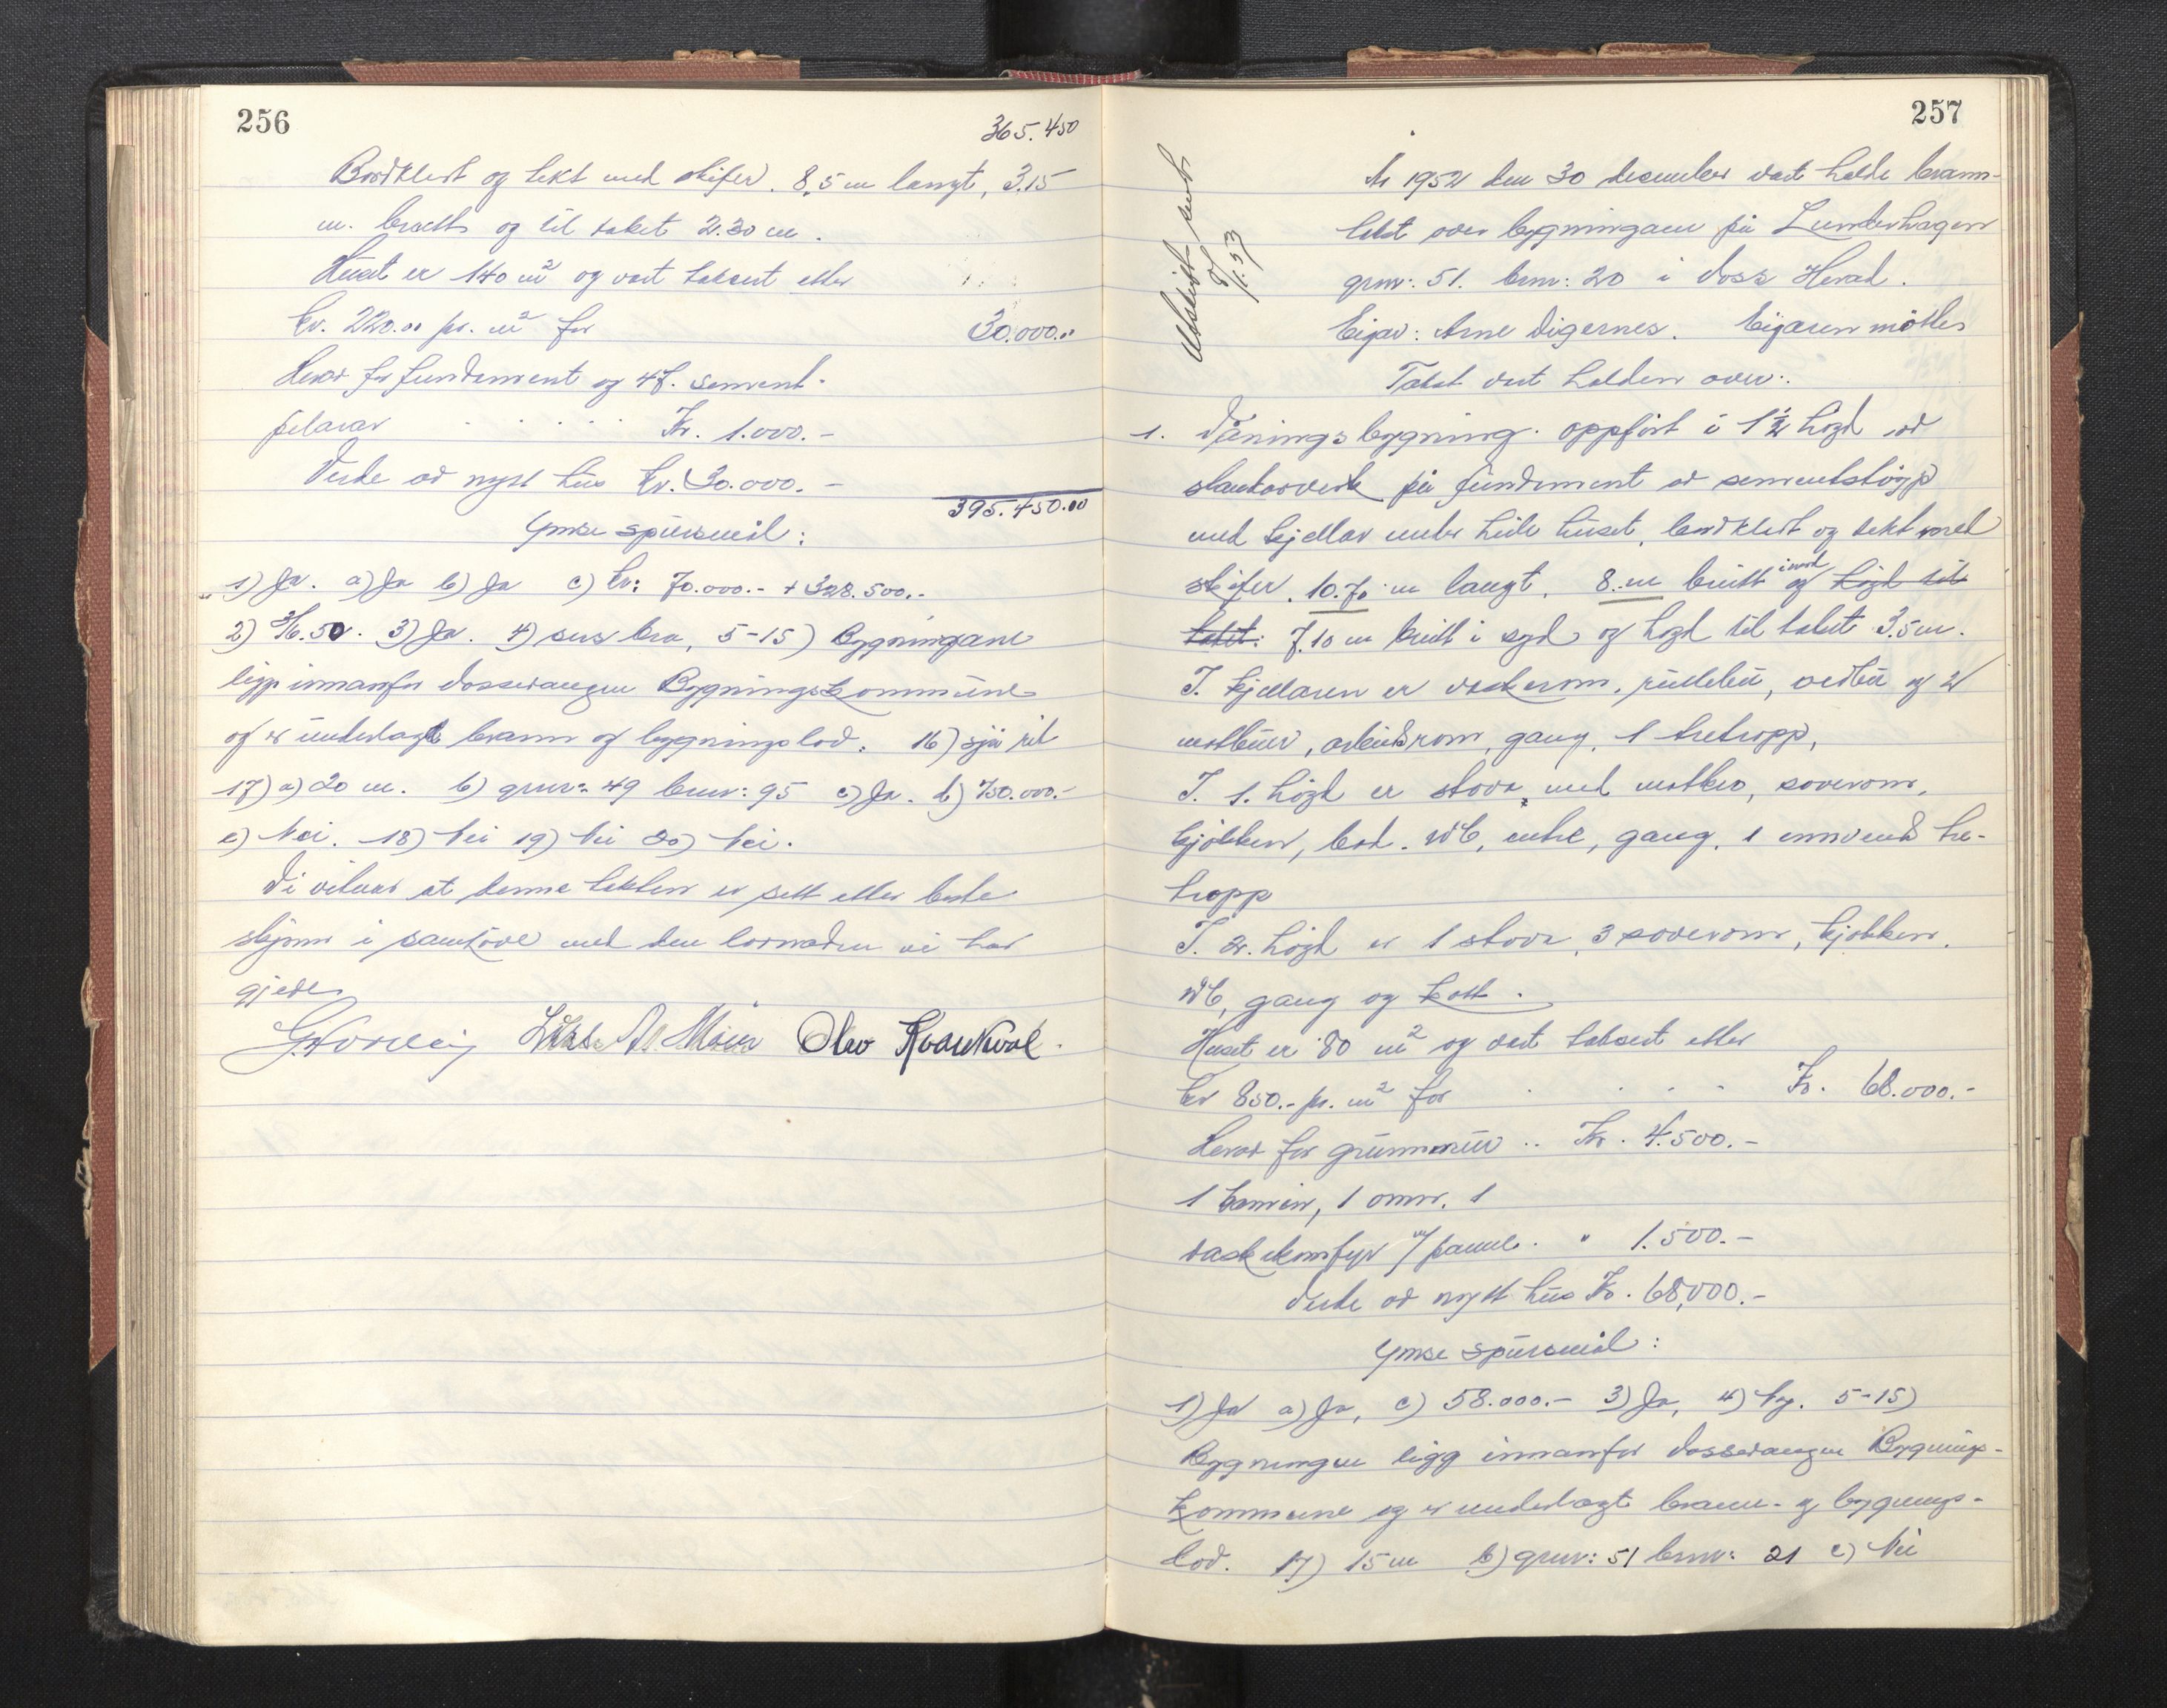 256
365.450
Bordkledt og tekt med skifer. 8,5 m langt, 3.15
m. breidt og til taket 2.30 m.
Huset er 140 m² og vart taksert etter
kr. 220.00 pr. m² for 30.000.00
Herav for fundament og 48. sement-
pelarar . . . . . Kr. 1.000.-
Verde av nytt hus kr. 30.000.-
395.450.00
Ymse spursmål:
1) Ja. a) Ja b) Ja c) kr: 70.000.- + 328.500.-
2) 50. 3) Ja. 4) bra, 5-15) Bygningane
ligg innanfor Vossevangen Bygningskommune
og er underlagt brann og bygningslov. 16) sjå rit
17) a) 20 m. b) gnr: 49 bnr: 95 c) Ja. d) 750.000.-
e) Nei. 18) Nei 19) Nei 20) Nei.
Vi vitnar at denne taksten er sett etter beste
skjønn i samhøve med den lovnaden vi har
gjeve
Olav Kvarekval.
257
Utskrift sendt
8/1.53
År 1952 den 30 desember vart halde brann-
takst over bygningane på Lundarhagen
gnr: 51. bnr: 20 i Voss Herad.
Eigar: Arne Digernes. Eigaren møtte
Takst vart halden over:
1. Våningsbygning. oppført i 1½ høgd av
stavborverk på fundament av sementstøyp
med kjellar under heile huset, bordkledt og tekt med
skifer. 10.70 m langt. 8. m breitt i nord og høgd til
taket: 7.10 m breitt i syd og høgd til taket 3.5 m.
I. kjellaren er vaskerom, rullebu, vedbu og 2
matbuer, arbeidsrom, gang, 1 tretropp,
I. 1. høgd er stova med matkro, soverom,
kjøkken, bad. WC, entre, gang. 1 innvend tre-
tropp
I. 2. høgd er 1 stova, 3 soverom, kjøkken.
WC, gang og kott.
Huset er 80 m² og vart taksert etter
kr 850.- pr. m² for . . . - Kr. 68.000.-
Herav for grunnmur .. Kr. 4.500.-
1 kamin, 1 omn. 1
vaskekomfyr m/panne. " 1.500.-
Verde av nytt hus Kr. 68,000.-
Ymse spursmål:
1) Ja a) Ja, c) 58.000.- 3) Ja, 4) Ny. 5-15)
Bygningen ligg innanfor Vossevangen Bygnings-
kommune og er underlagt brann- og bygnings-
lov. 17) 15 m b) gnr: 51 bnr: 21 c) Nei